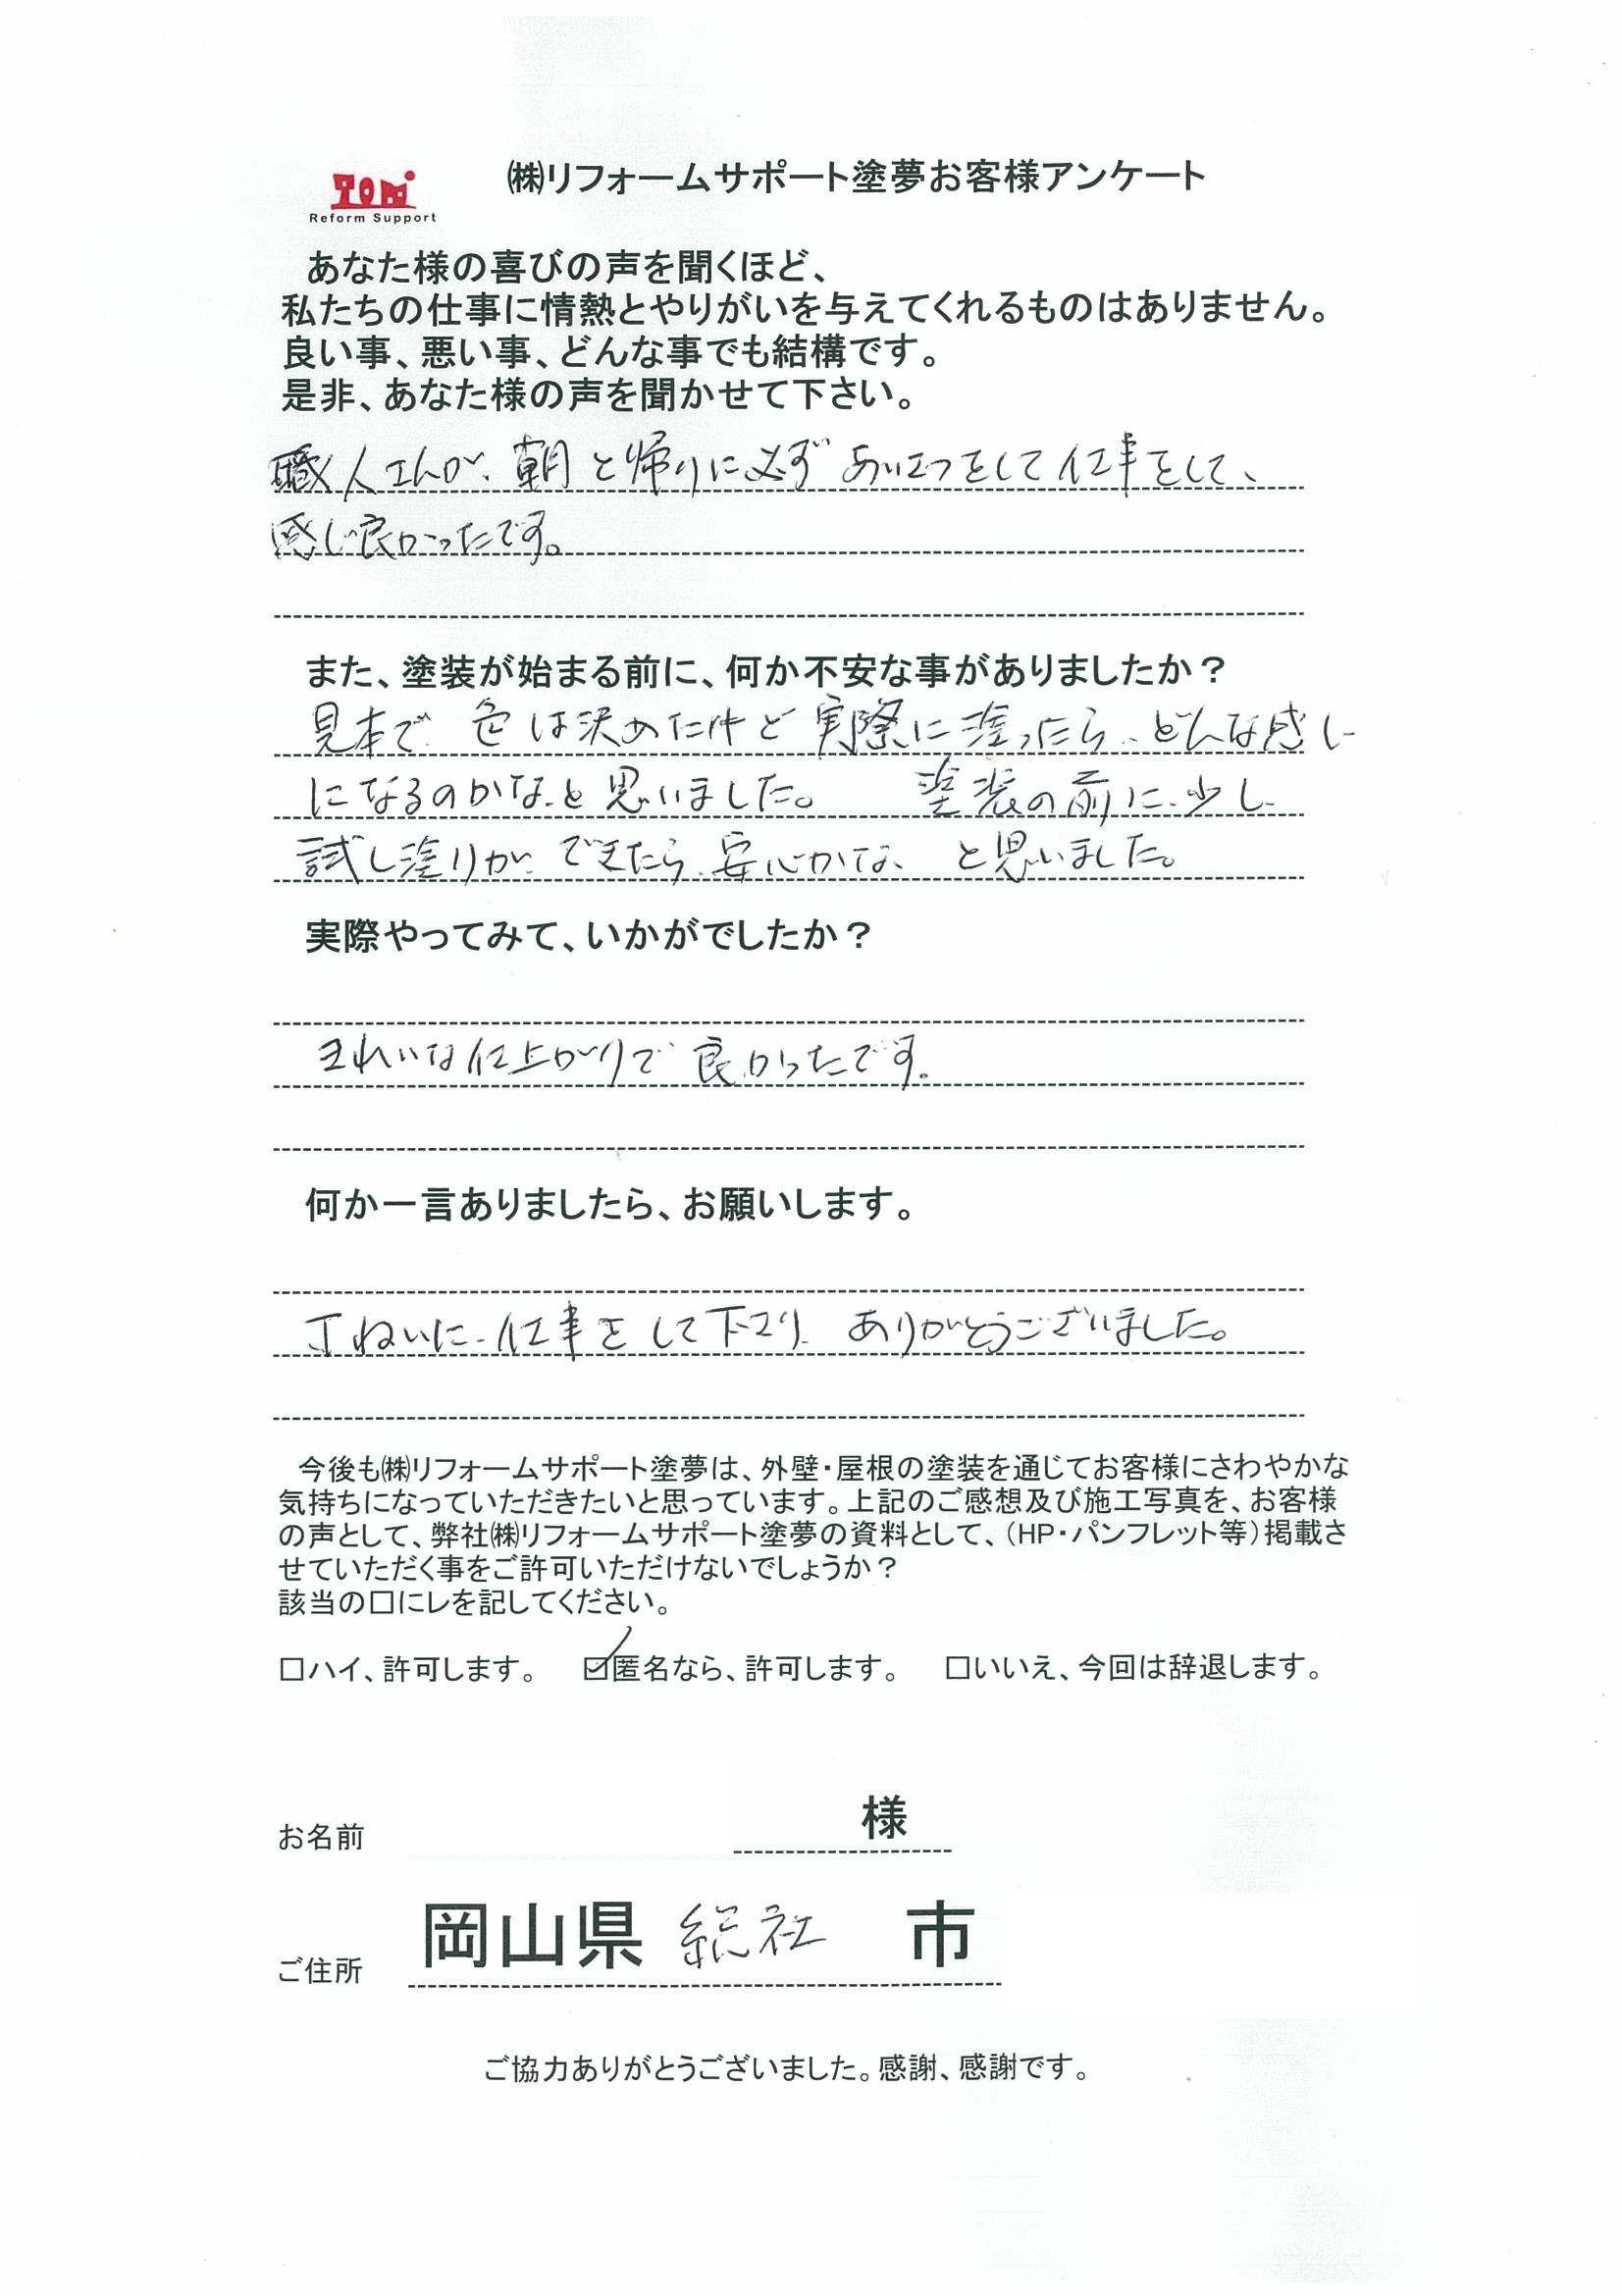 TOM
Reform Support
㈱リフォームサポート塗夢お客様アンケート
あなた様の喜びの声を聞くほど、
私たちの仕事に情熱とやりがいを与えてくれるものはありません。
良い事、悪い事、どんな事でも結構です。
是非、あなた様の声を聞かせて下さい。
職人さんが、朝と帰りに必ずあいさつをして仕事をして、
感じ良かったです。
また、塗装が始まる前に、何か不安な事がありましたか？
見本で、色は決めたけど実際に塗ったら、どんな感じ
になるのかな、と思いました。 塗装の前に、少し
試し塗りが、できたら、安心かな、と思いました。
実際やってみて、いかがでしたか？
きれいな仕上がりで良かったです。
何か一言ありましたら、お願いします。
丁ねいに、仕事をして下さり、ありがとうございました。
今後も㈱リフォームサポート塗夢は、外壁・屋根の塗装を通じてお客様にさわやかな
気持ちになっていただきたいと思っています。上記のご感想及び施工写真を、お客様
の声として、弊社㈱リフォームサポート塗夢の資料として、（HP・パンフレット等）掲載さ
せていただく事をご許可いただけないでしょうか？
該当の□にレを記してください。
□ハイ、許可します。 ☑匿名なら、許可します。 □いいえ、今回は辞退します。
お名前 様
ご住所 岡山県 総社 市
ご協力ありがとうございました。感謝、感謝です。